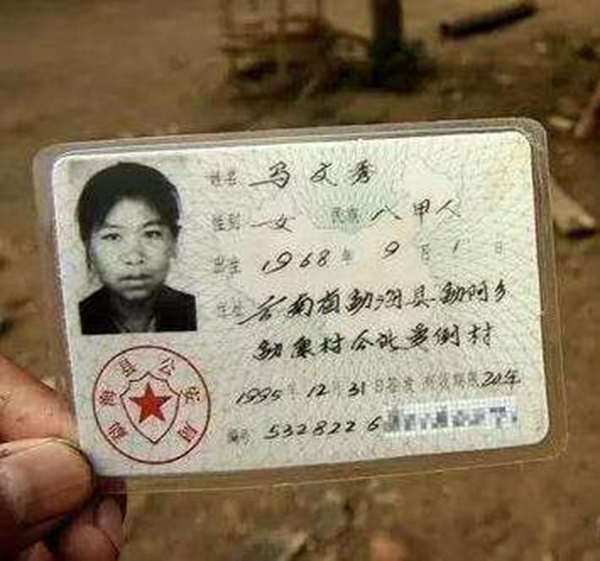 姓名 马文秀
性别 女 民族 八甲人
出生 1968年9月1日
住址 云南省勐海县勐阿乡
勐康村公所曼倒村
1995年12月31日签发 有效期限20年
编号 5328226
勐海县公安局